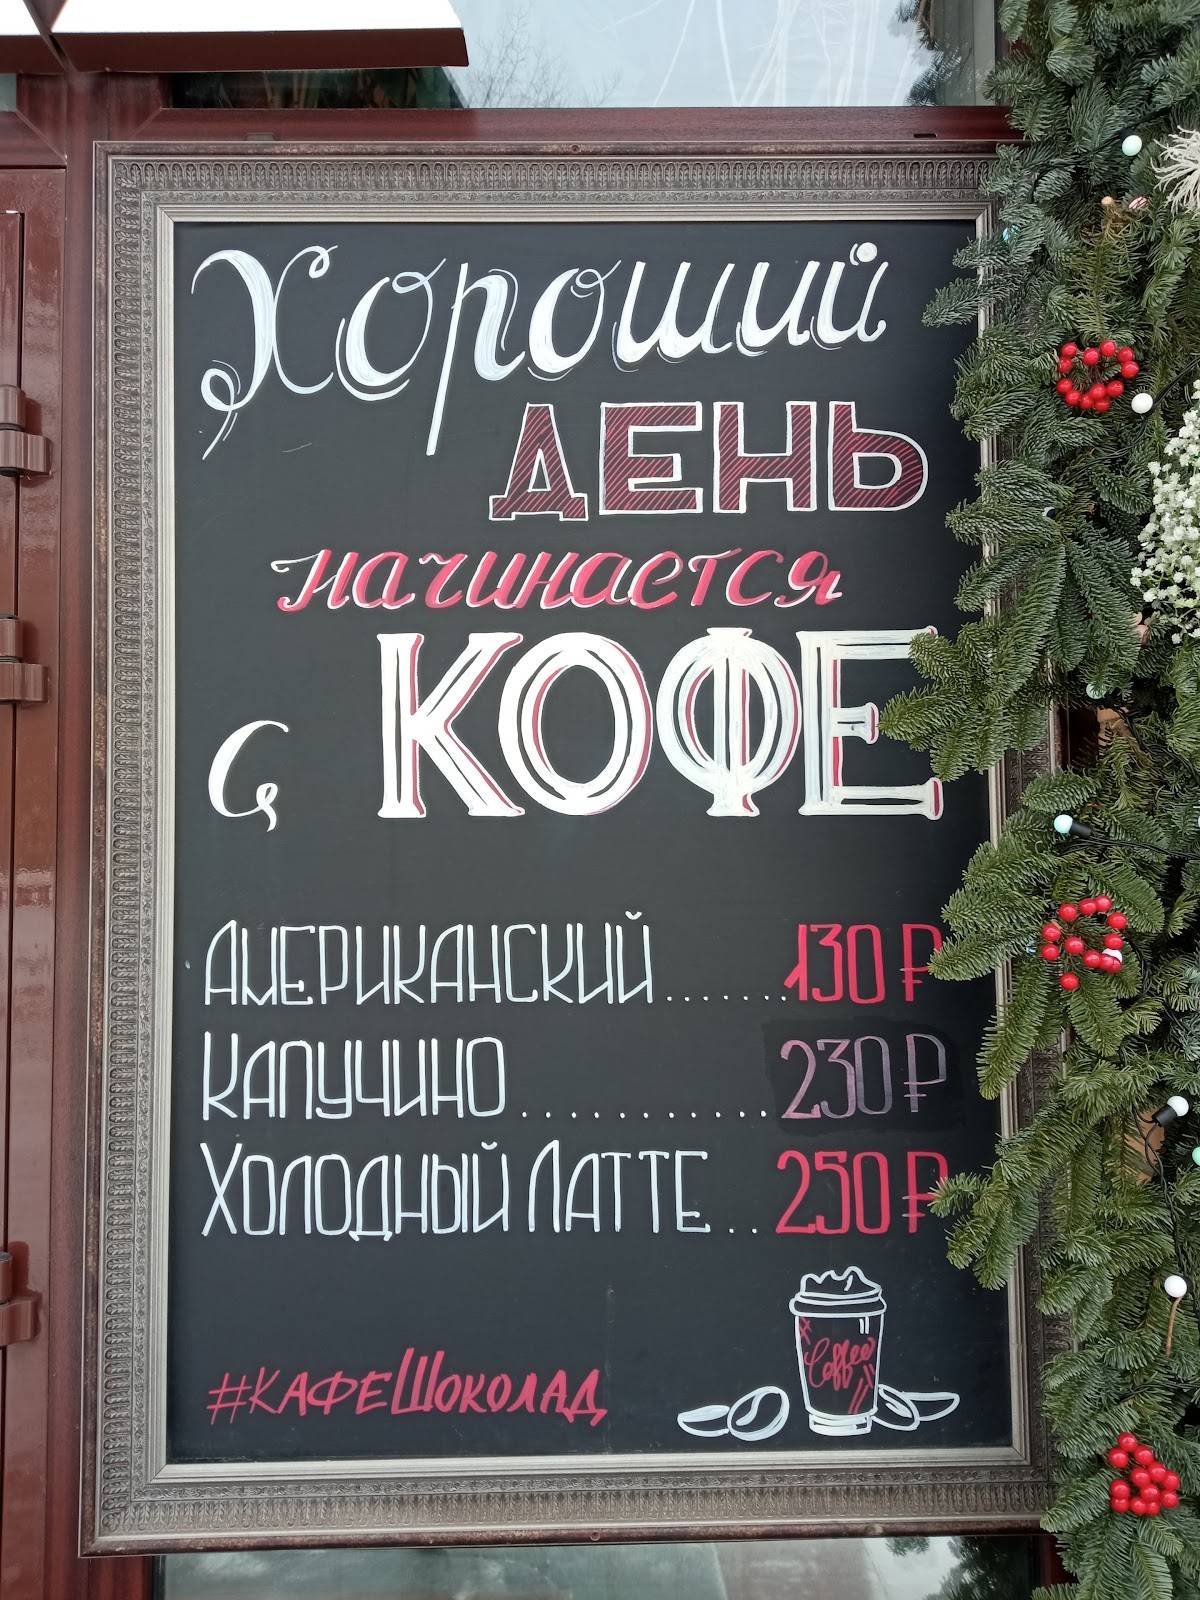 Хороший
ДЕНЬ
начинается
с КОФЕ
Американский.......130 ₽
Капучино...........230 ₽
Холодный Латте..250 ₽
#кафеШоколад
Coffee